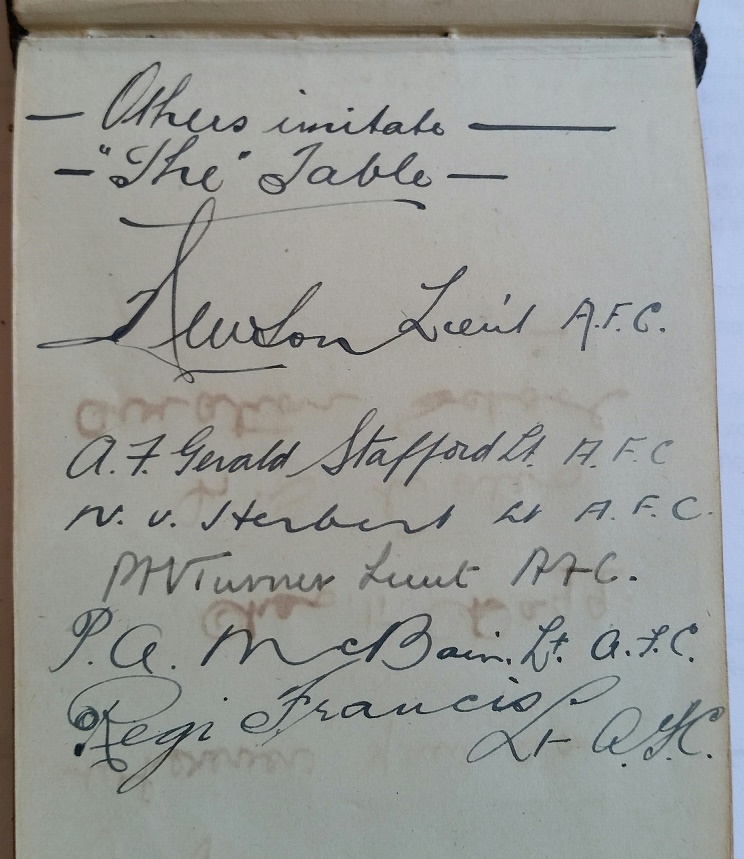 — Others imitate —
— "The" Table —
Newson Lieut A.F.C.
A. F. Gerald Stafford Lt. A.F.C
N. V. Herbert Lt A.F.C.
Turner Lieut AFC.
P. A. McBain. Lt. A.F.C.
Regi Francis
Lt A.F.C.